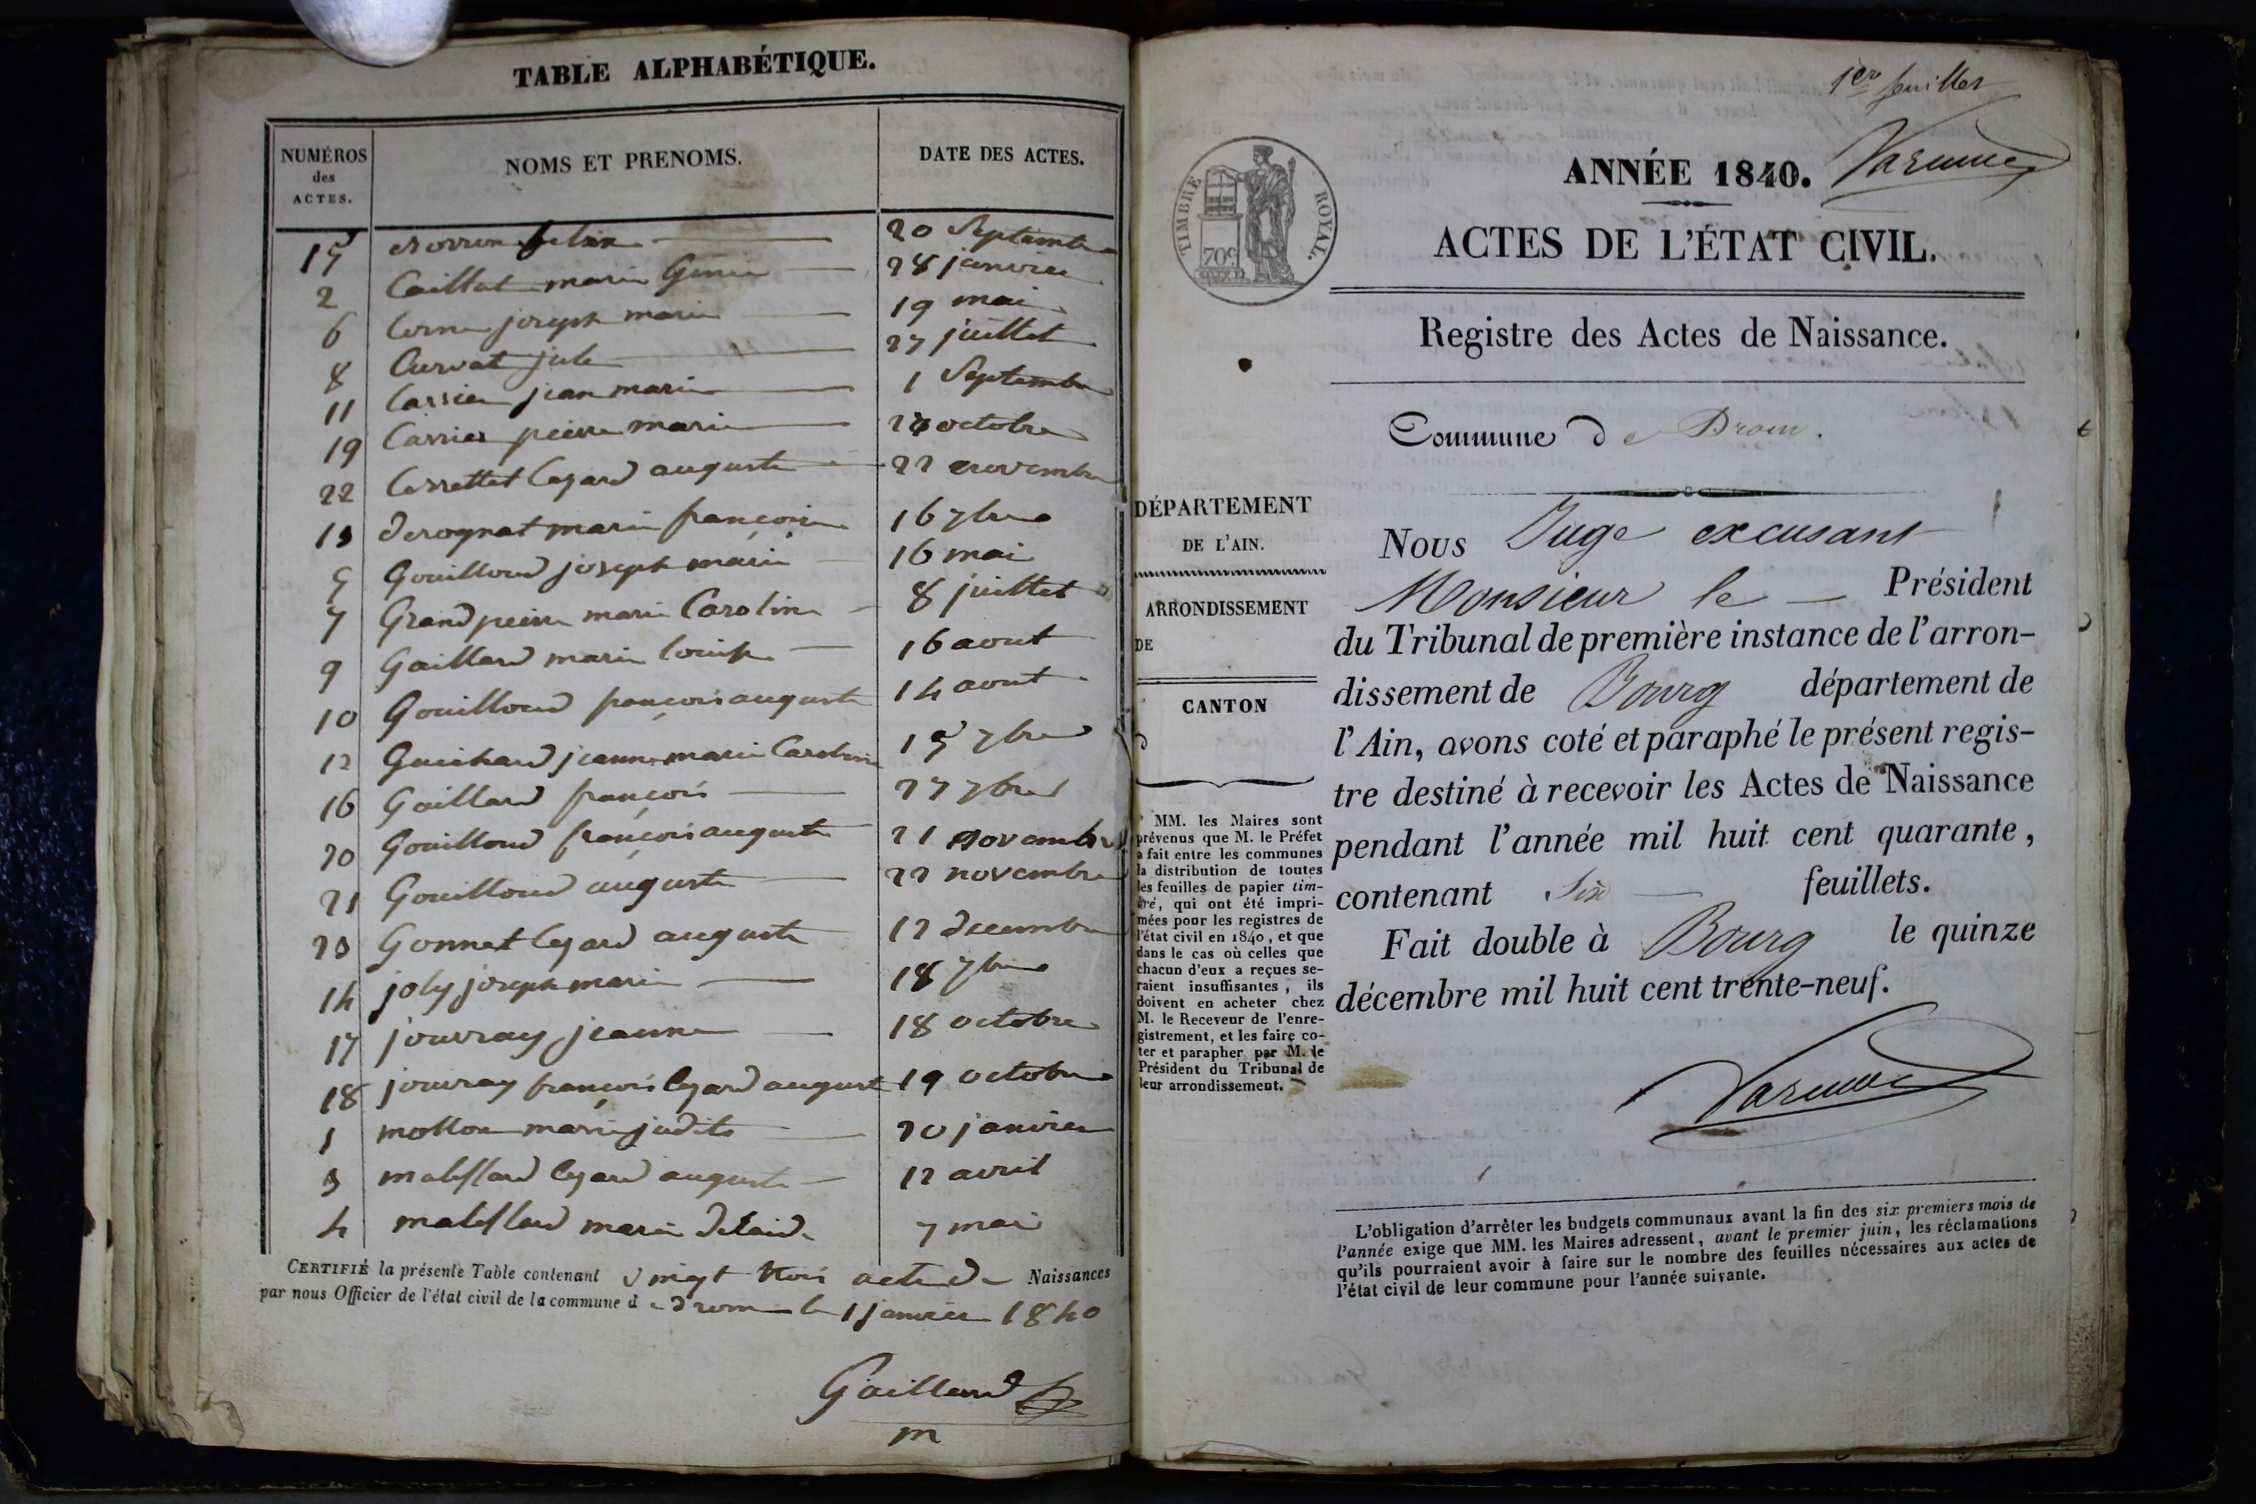 TABLE ALPHABÉTIQUE.
NUMÉROS des ACTES.
NOMS ET PRENOMS.
DATE DES ACTES.
15 20 Septembre
2 Caillat marie 28 janvier
6 joseph marie 19 mai
8 Curvat jule 27 juillet
11 Carrier jean marie 1 Septembre
19 Carrier pierre marie octobre
22 Cesard auguste 22 novembre
13 derognat marie françoise 16 7bre
5 Gouilloud joseph marie 16 mai
7 Grandpierre marie Caroline 8 juillet
9 Gaillard marie louise 16 aout
10 Gouilloud françois auguste 14 aout
12 Guichard jeanne marie Caroline 15 7bre
16 Gaillard françois 27 7bre
20 Gouilloud françois auguste 21 novembre
21 Gouilloud auguste 22 novembre
23 Gonnet Cesard auguste 12 decembre
14 joly joseph marie 18 7bre
17 jouvray jeanne 18 octobre
18 jouvray françois Cesard auguste 19 octobre
1 mollon marie judite 20 janvier
3 Cesard auguste 12 avril
4 marie 7 mai
CERTIFIÉ la présente Table contenant vingt trois acte de Naissances
par nous Officier de l'état civil de la commune de drom le 1 janvier 1840
Gaillard
m
1er feuillet
TIMBRE ROYAL.
70c
ANNÉE 1840.
ACTES DE L'ÉTAT CIVIL.
Registre des Actes de Naissance.
Commune de Drom.
DÉPARTEMENT
DE L'AIN.
ARRONDISSEMENT
DE
CANTON
d
MM. les Maires sont
prévenus que M. le Préfet
a fait entre les communes
la distribution de toutes
les feuilles de papier tim-
bré, qui ont été impri-
mées pour les registres de
l'état civil en 1840, et que
dans le cas où celles que
chacun d'eux a reçues se-
raient insuffisantes, ils
doivent en acheter chez
M. le Receveur de l'enre-
gistrement, et les faire co-
ter et parapher par M. le
Président du Tribunal de
leur arrondissement.
Nous Juge excusant
Monsieur le Président
du Tribunal de première instance de l'arron-
dissement de Bourg département de
l'Ain, avons coté et paraphé le présent regis-
tre destiné à recevoir les Actes de Naissance
pendant l'année mil huit cent quarante,
contenant Six feuillets.
Fait double à Bourg le quinze
décembre mil huit cent trente-neuf.
L'obligation d'arrêter les budgets communaux avant la fin des six premiers mois de
l'année exige que MM. les Maires adressent, avant le premier juin, les réclamations
qu'ils pourraient avoir à faire sur le nombre des feuilles nécessaires aux actes de
l'état civil de leur commune pour l'année suivante.